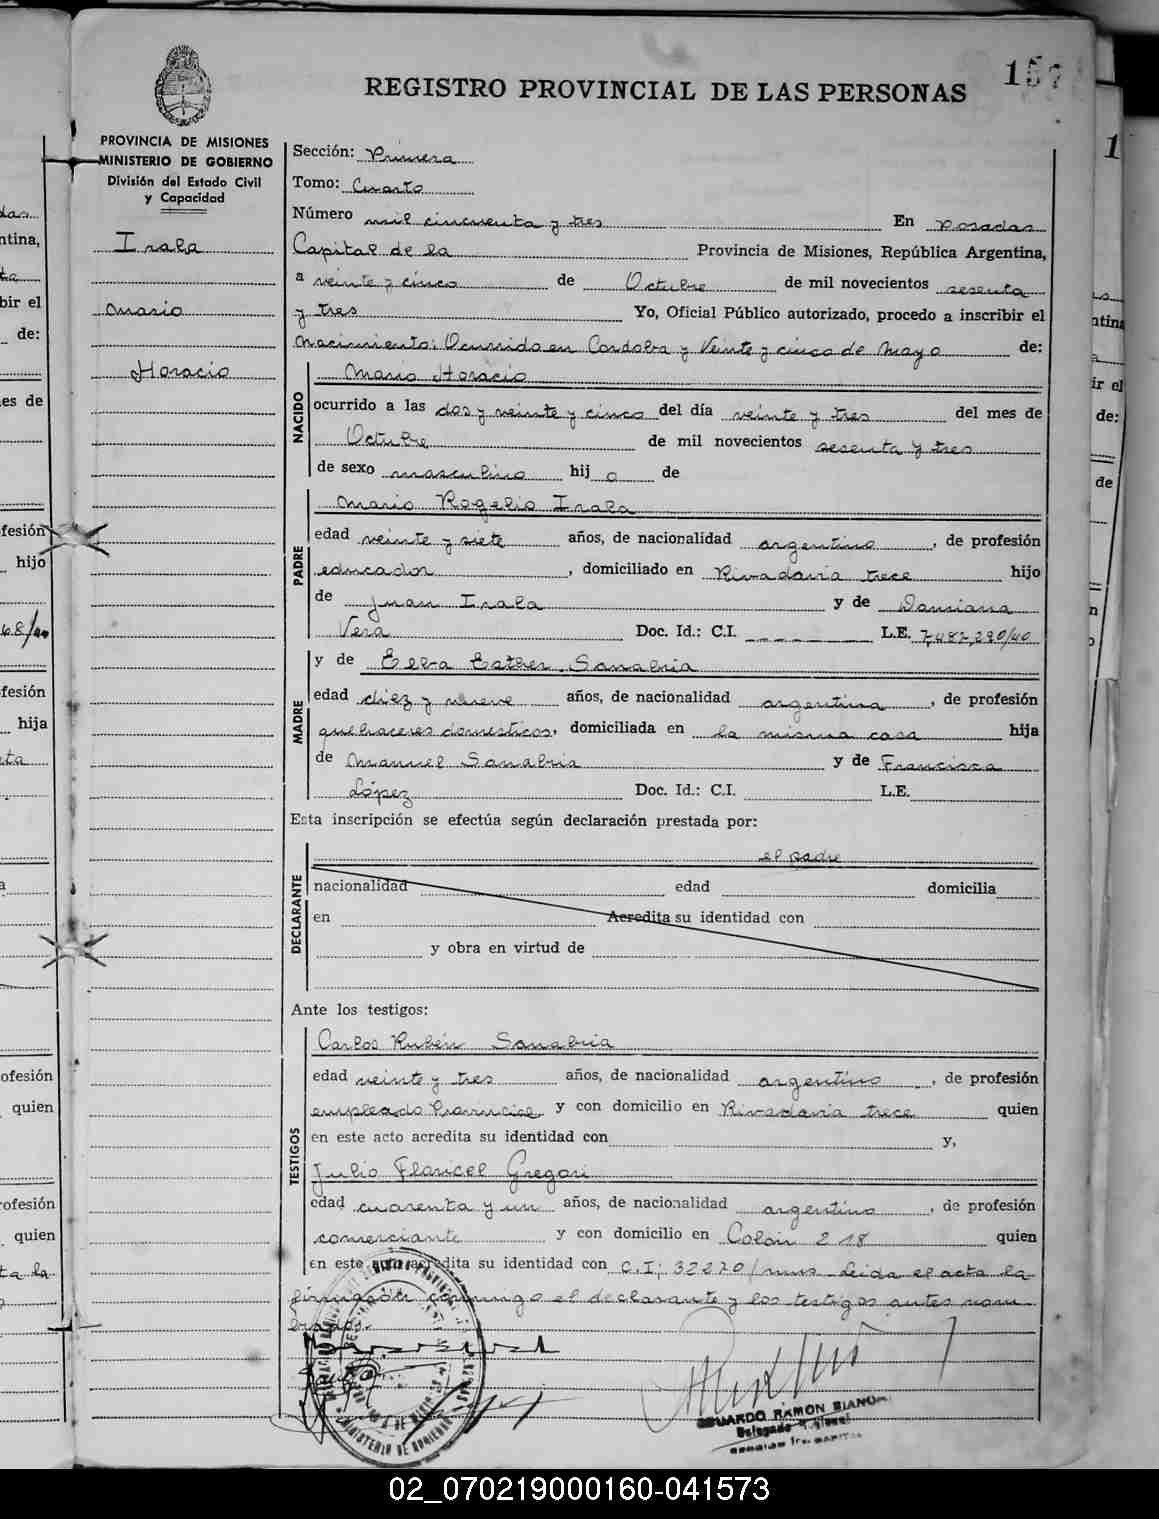 157
REGISTRO PROVINCIAL DE LAS PERSONAS
PROVINCIA DE MISIONES
MINISTERIO DE GOBIERNO
División del Estado Civil
y Capacidad
Irala
Mario
Horacio
Sección: Primera
Tomo: Cuarto
Número mil cincuenta y tres En Posadas
Capital de la Provincia de Misiones, República Argentina,
a veinte y cinco de Octubre de mil novecientos sesenta
y tres Yo, Oficial Público autorizado, procedo a inscribir el
Nacimiento: Ocurrido en Cordoba y Veinte y cinco de Mayo de:
NACIDO
Mario Horacio
ocurrido a las dos y veinte y cinco del día veinte y tres del mes de
Octubre de mil novecientos sesenta y tres
de sexo masculino hij o de
PADRE
Mario Rogelio Irala
edad veinte y siete años, de nacionalidad argentino, de profesión
educador, domiciliado en Rivadavia trece hijo
de Juan Irala y de Damiana
Vera Doc. Id.: C.I. L.E. 7,487,290/40
y de Elba Esther Sanabria
MADRE
edad diez y nueve años, de nacionalidad argentina, de profesión
quehaceres domesticos, domiciliada en la misma casa hija
de Manuel Sanabria y de Francisca
López Doc. Id.: C.I. L.E.
Esta inscripción se efectúa según declaración prestada por:
DECLARANTE
el padre
nacionalidad edad domicilia
en Acredita su identidad con
y obra en virtud de
Ante los testigos:
TESTIGOS
Carlos Rubén Sanabria
edad veinte y tres años, de nacionalidad argentino, de profesión
empleado Provincial y con domicilio en Rivadavia trece quien
en este acto acredita su identidad con y,
Julio Gregori
edad cuarenta y un años, de nacionalidad argentino, de profesión
comerciante y con domicilio en Colón 218 quien
en este acto acredita su identidad con C.I; 32270/mns. Leida el acta la
firman conmigo el declarante y los testigos antes nom
brados.
EDUARDO RAMON
02_070219000160-041573